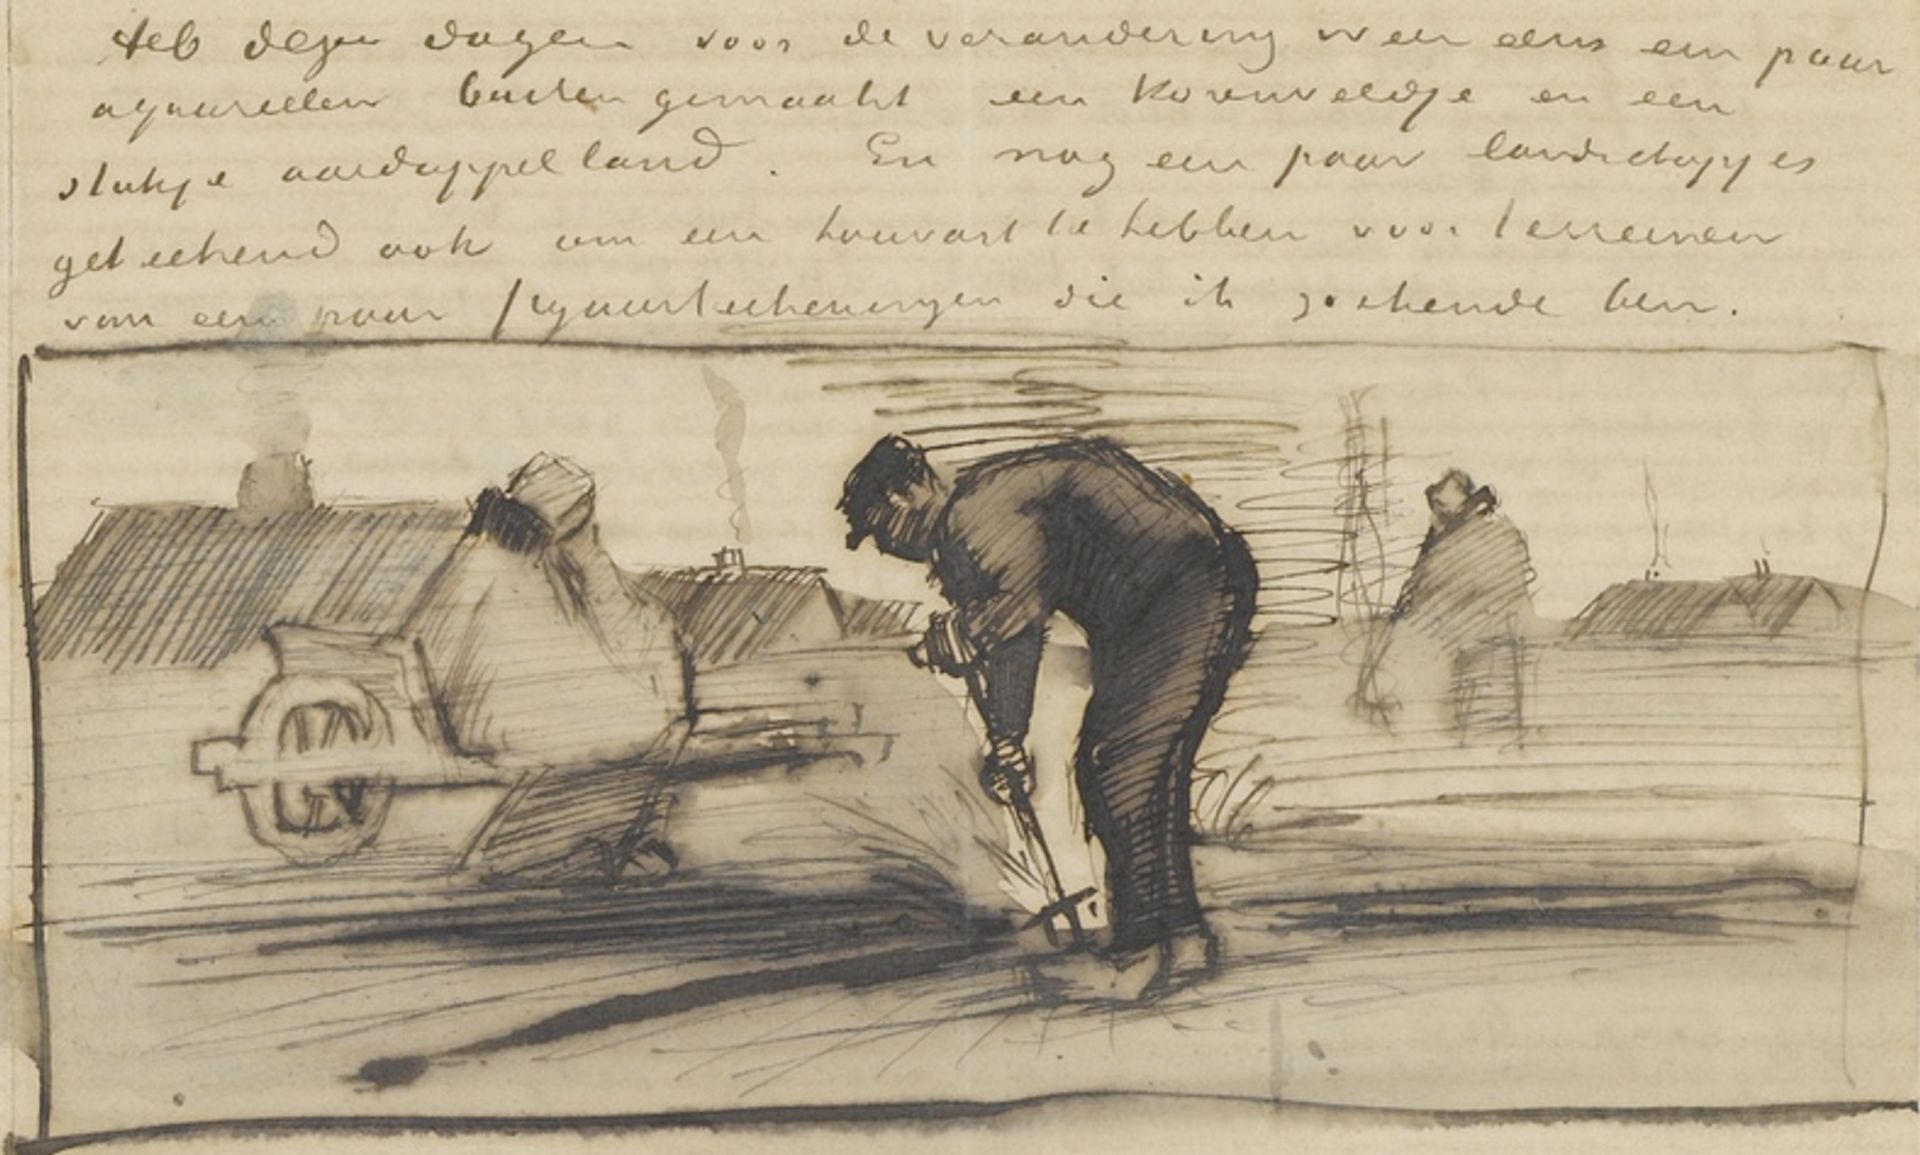 Heb dezer dagen voor de verandering weer eens een paar
aquarellen buiten gemaakt een korenveldje en een
stukje aardappelland. En nog een paar landschapjes
geteekend ook om een houvast te hebben voor terreinen
van een paar figuurteekeningen die ik zoekende ben.